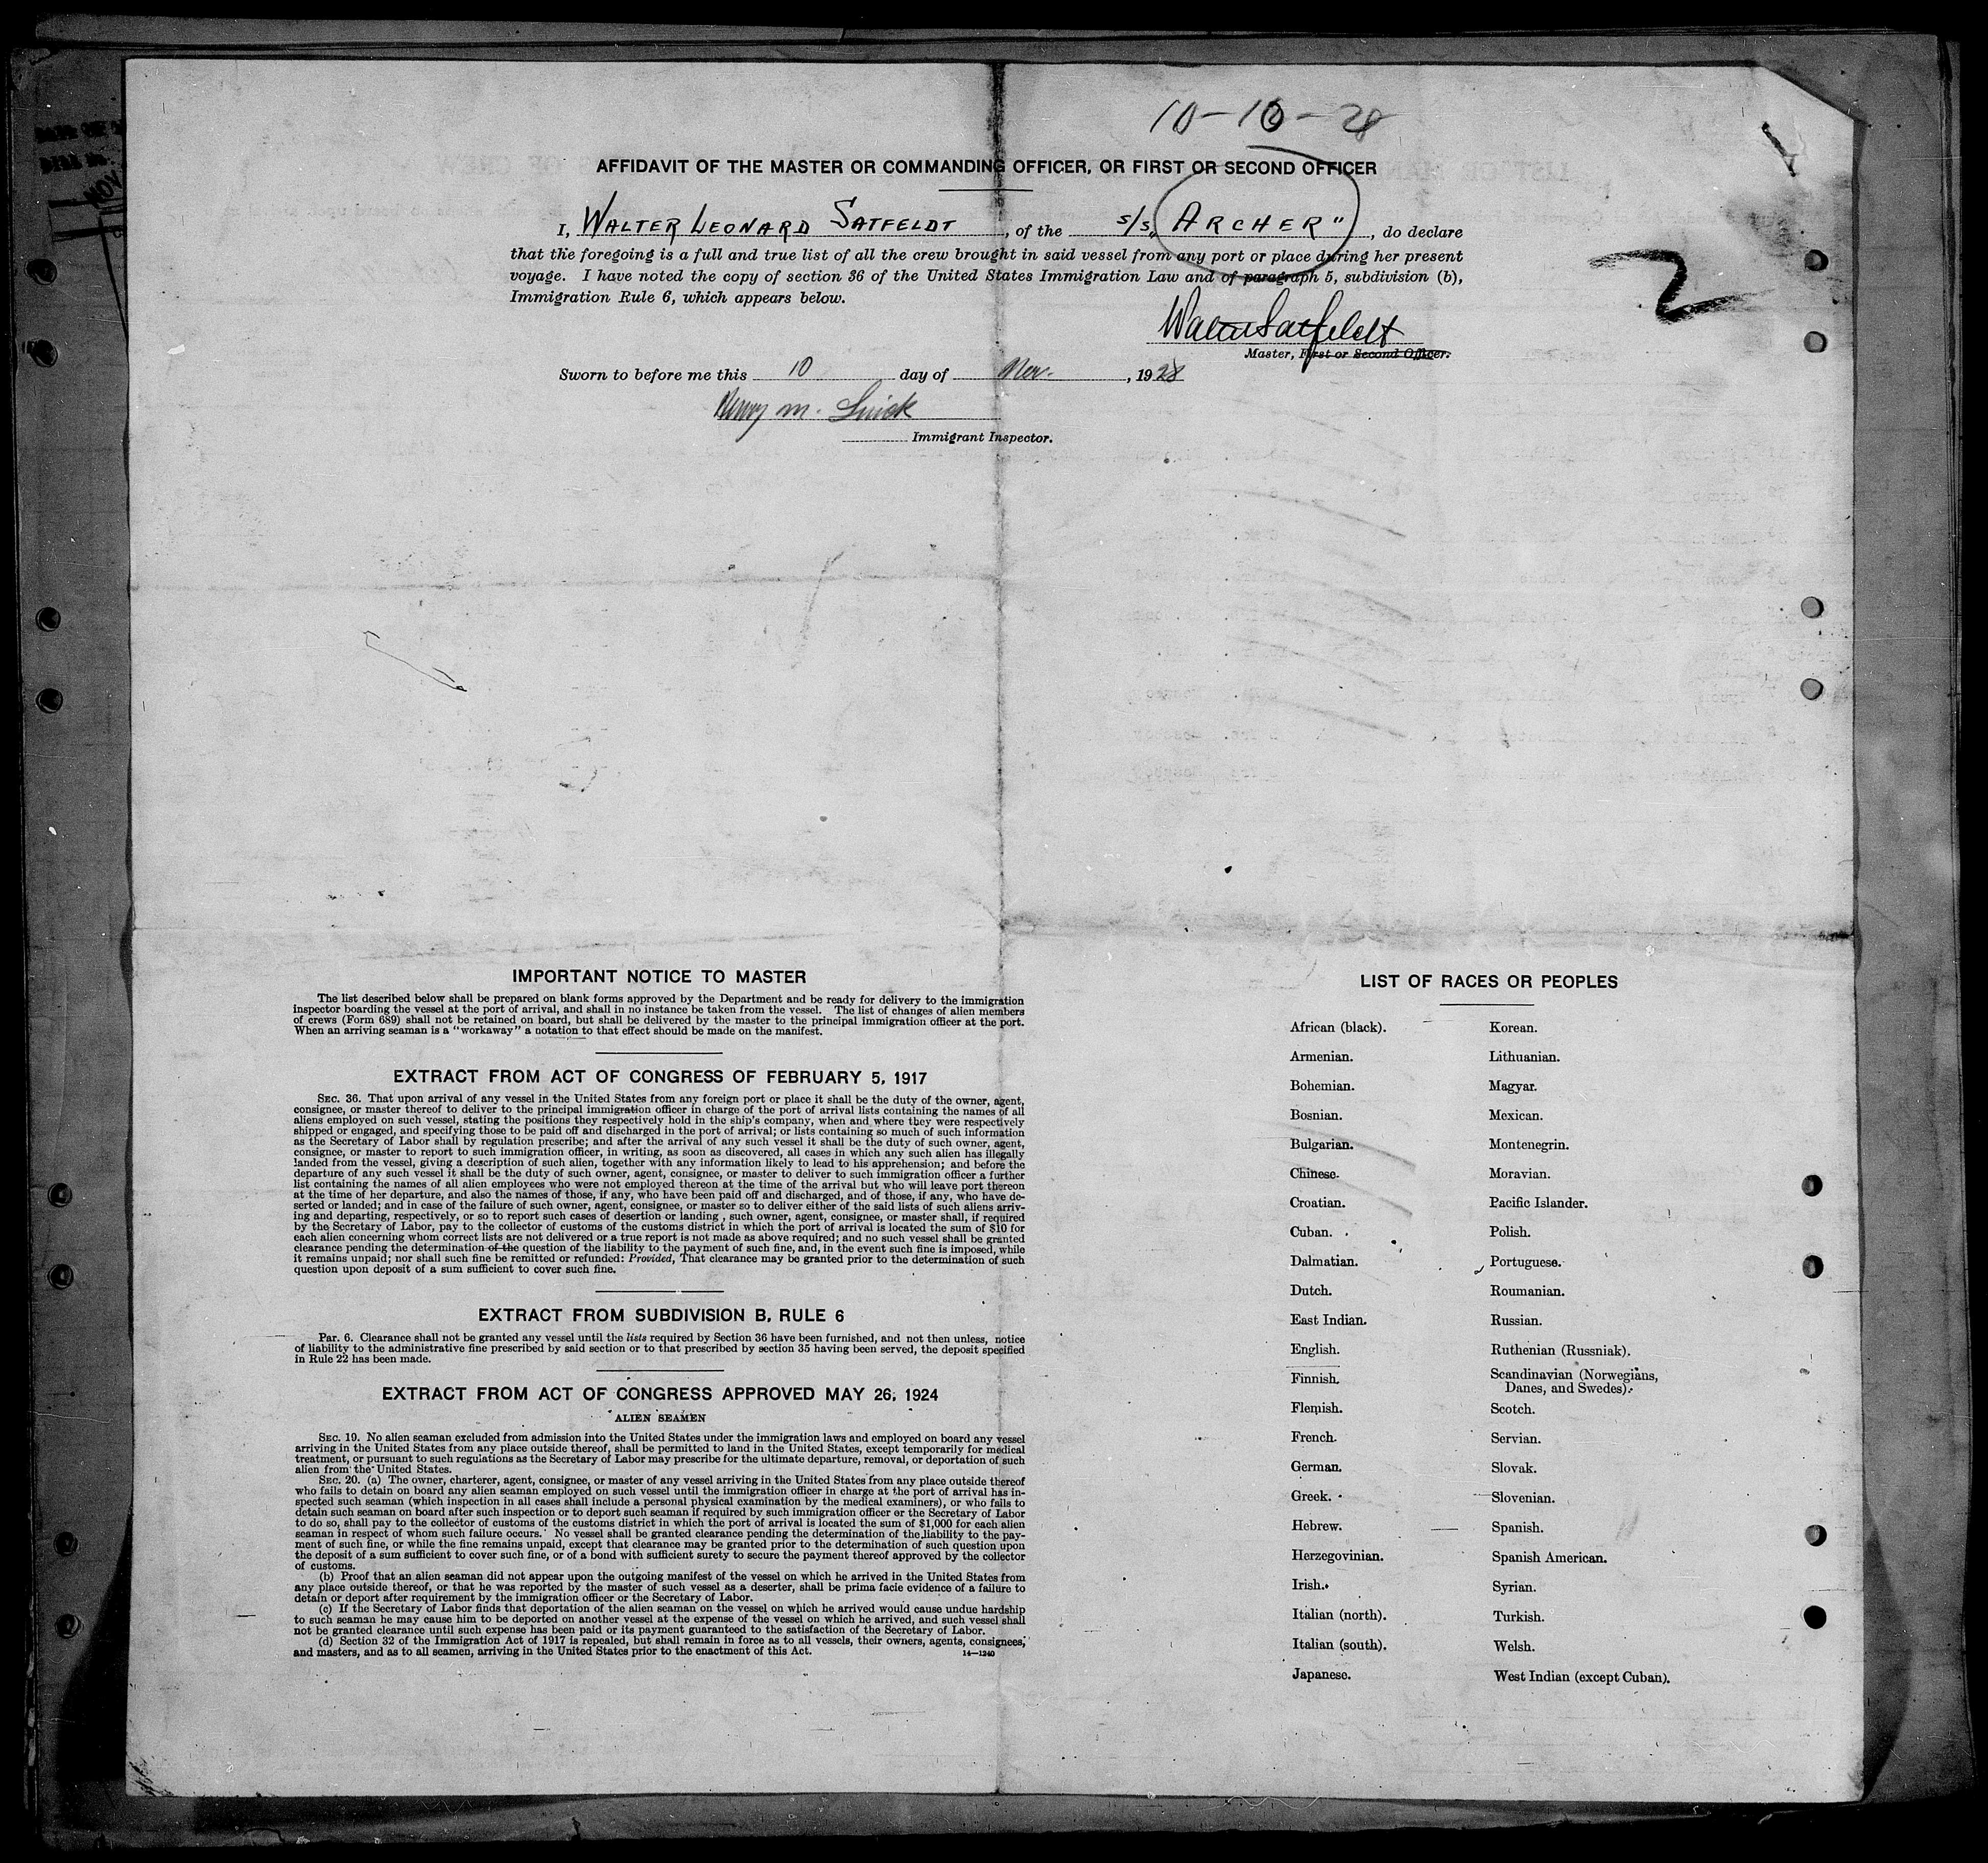 10-10-28
AFFIDAVIT OF THE MASTER OR COMMANDING OFFICER, OR FIRST OR SECOND OFFICER
I, WALTER LEONARD SATFELDT, of the s/s „ARCHER", do declare
that the foregoing is a full and true list of all the crew brought in said vessel from any port or place during her present
voyage. I have noted the copy of section 36 of the United States Immigration Law and of paragraph 5, subdivision (b),
Immigration Rule 6, which appears below.
2
Walter Satfeldt
Master, First or Second Officer.
Sworn to before me this 10 day of Nov., 1928
Henry M.
Immigrant Inspector.
IMPORTANT NOTICE TO MASTER
The list described below shall be prepared on blank forms approved by the Department and be ready for delivery to the immigration
inspector boarding the vessel at the port of arrival, and shall in no instance be taken from the vessel. The list of changes of alien members
of crews (Form 689) shall not be retained on board, but shall be delivered by the master to the principal immigration officer at the port.
When an arriving seaman is a "workaway" a notation to that effect should be made on the manifest.
EXTRACT FROM ACT OF CONGRESS OF FEBRUARY 5, 1917
SEC. 36. That upon arrival of any vessel in the United States from any foreign port or place it shall be the duty of the owner, agent,
consignee, or master thereof to deliver to the principal immigration officer in charge of the port of arrival lists containing the names of all
aliens employed on such vessel, stating the positions they respectively hold in the ship's company, when and where they were respectively
shipped or engaged, and specifying those to be paid off and discharged in the port of arrival; or lists containing so much of such information
as the Secretary of Labor shall by regulation prescribe; and after the arrival of any such vessel it shall be the duty of such owner, agent,
consignee, or master to report to such immigration officer, in writing, as soon as discovered, all cases in which any such alien has illegally
landed from the vessel, giving a description of such alien, together with any information likely to lead to his apprehension; and before the
departure of any such vessel it shall be the duty of such owner, agent, consignee, or master to deliver to such immigration officer a further
list containing the names of all alien employees who were not employed thereon at the time of the arrival but who will leave port thereon
at the time of her departure, and also the names of those, if any, who have been paid off and discharged, and of those, if any, who have de-
serted or landed; and in case of the failure of such owner, agent, consignee, or master so to deliver either of the said lists of such aliens arriv-
ing and departing, respectively, or so to report such cases of desertion or landing, such owner, agent, consignee, or master shall, if required
by the Secretary of Labor, pay to the collector of customs of the customs district in which the port of arrival is located the sum of $10 for
each alien concerning whom correct lists are not delivered or a true report is not made as above required; and no such vessel shall be granted
clearance pending the determination of the question of the liability to the payment of such fine, and, in the event such fine is imposed, while
it remains unpaid; nor shall such fine be remitted or refunded: Provided, That clearance may be granted prior to the determination of such
question upon deposit of a sum sufficient to cover such fine.
EXTRACT FROM SUBDIVISION B, RULE 6
Par. 6. Clearance shall not be granted any vessel until the lists required by Section 36 have been furnished, and not then unless, notice
of liability to the administrative fine prescribed by said section or to that prescribed by section 35 having been served, the deposit specified
in Rule 22 has been made.
EXTRACT FROM ACT OF CONGRESS APPROVED MAY 26, 1924
ALIEN SEAMEN
SEC. 19. No alien seaman excluded from admission into the United States under the immigration laws and employed on board any vessel
arriving in the United States from any place outside thereof, shall be permitted to land in the United States, except temporarily for medical
treatment, or pursuant to such regulations as the Secretary of Labor may prescribe for the ultimate departure, removal, or deportation of such
alien from the United States.
SEC. 20. (a) The owner, charterer, agent, consignee, or master of any vessel arriving in the United States from any place outside thereof
who fails to detain on board any alien seaman employed on such vessel until the immigration officer in charge at the port of arrival has in-
spected such seaman (which inspection in all cases shall include a personal physical examination by the medical examiners), or who fails to
detain such seaman on board after such inspection or to deport such seaman if required by such immigration officer or the Secretary of Labor
to do so, shall pay to the collector of customs of the customs district in which the port of arrival is located the sum of $1,000 for each alien
seaman in respect of whom such failure occurs. No vessel shall be granted clearance pending the determination of the liability to the pay-
ment of such fine, or while the fine remains unpaid, except that clearance may be granted prior to the determination of such question upon
the deposit of a sum sufficient to cover such fine, or of a bond with sufficient surety to secure the payment thereof approved by the collector
of customs.
(b) Proof that an alien seaman did not appear upon the outgoing manifest of the vessel on which he arrived in the United States from
any place outside thereof, or that he was reported by the master of such vessel as a deserter, shall be prima facie evidence of a failure to
detain or deport after requirement by the immigration officer or the Secretary of Labor.
(c) If the Secretary of Labor finds that deportation of the alien seaman on the vessel on which he arrived would cause undue hardship
to such seaman he may cause him to be deported on another vessel at the expense of the vessel on which he arrived, and such vessel shall
not be granted clearance until such expense has been paid or its payment guaranteed to the satisfaction of the Secretary of Labor.
(d) Section 32 of the Immigration Act of 1917 is repealed, but shall remain in force as to all vessels, their owners, agents, consignees,
and masters, and as to all seamen, arriving in the United States prior to the enactment of this Act.
14—1240
LIST OF RACES OR PEOPLES
African (black). Korean.
Armenian. Lithuanian.
Bohemian. Magyar.
Bosnian. Mexican.
Bulgarian. Montenegrin.
Chinese. Moravian.
Croatian. Pacific Islander.
Cuban. Polish.
Dalmatian. Portuguese.
Dutch. Roumanian.
East Indian. Russian.
English. Ruthenian (Russniak).
Finnish. Scandinavian (Norwegians,
Danes, and Swedes).
Flemish. Scotch.
French. Servian.
German. Slovak.
Greek. Slovenian.
Hebrew. Spanish.
Herzegovinian. Spanish American.
Irish. Syrian.
Italian (north). Turkish.
Italian (south). Welsh.
Japanese. West Indian (except Cuban).